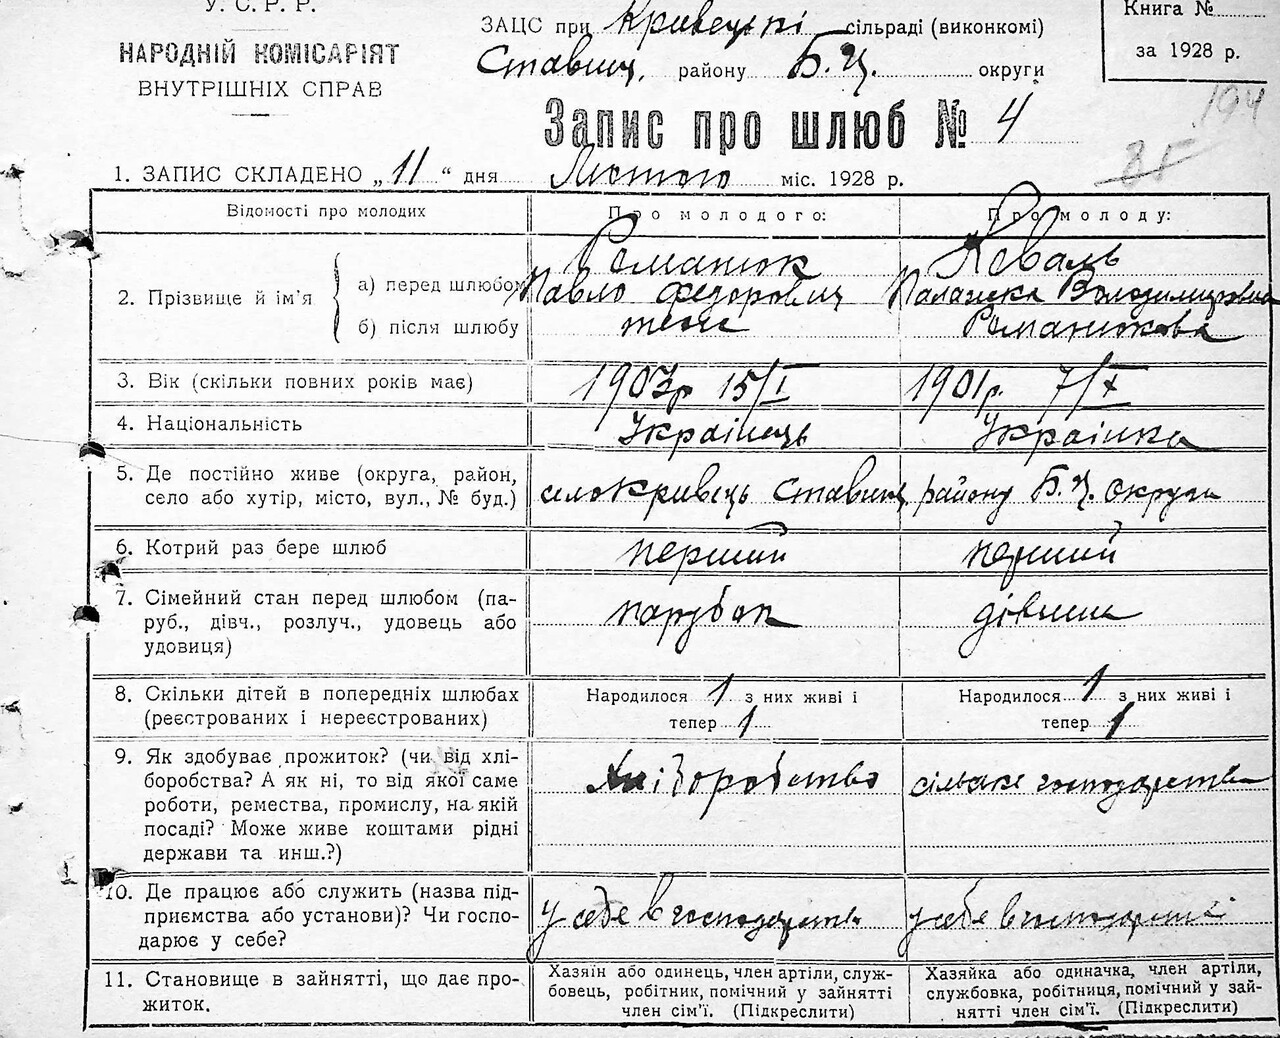 У. С. Р. Р.
НАРОДНІЙ КОМІСАРІЯТ
ВНУТРІШНІХ СПРАВ
ЗАЦС при Кривецькі сільраді (виконкомі)
Ставищ. району Б.Ц. округи
Книга №
за 1928 р.
194
85
Запис про шлюб № 4
1. ЗАПИС СКЛАДЕНО „11“ дня Лютого міс. 1928 р.
Відомості про молодих
Про молодого:
Про молоду:
2. Прізвище й ім'я
а) перед шлюбом
б) після шлюбу
Романюк
Павло Федорович
теж
Коваль
Палажка Володимировна
Романюкова
3. Вік (скільки повних років має)
1903р 15/I
1901р. 7/X
4. Національність
Українець
Українка
5. Де постійно живе (округа, район,
село або хутір, місто, вул., № буд.)
село Кривець Ставищ. району Б.Ц. Округи
6. Котрий раз бере шлюб
перший
перший
7. Сімейний стан перед шлюбом (па-
руб., дівч., розлуч., удовець або
удовиця)
парубок
дівчина
8. Скільки дітей в попередніх шлюбах
(реєстрованих і нереєстрованих)
Народилося 1 з них живі і
тепер 1
Народилося 1 з них живі і
тепер 1
9. Як здобуває прожиток? (чи від хлі-
боробства? А як ні, то від якої саме
роботи, ремества, промислу, на якій
посаді? Може живе коштами рідні
держави та инш.?)
Хліборобство
сільске господарство
10. Де працює або служить (назва під-
приємства або установи)? Чи госпо-
дарює у себе?
у себе в господарстві
у себе в господарстві
11. Становище в зайнятті, що дає про-
житок.
Хазяїн або одинець, член артіли, служ-
бовець, робітник, помічний у зайнятті
член сім'ї. (Підкреслити)
Хазяйка або одиначка, член артіли,
службовка, робітниця, помічний у зай-
нятті член сім'ї. (Підкреслити)